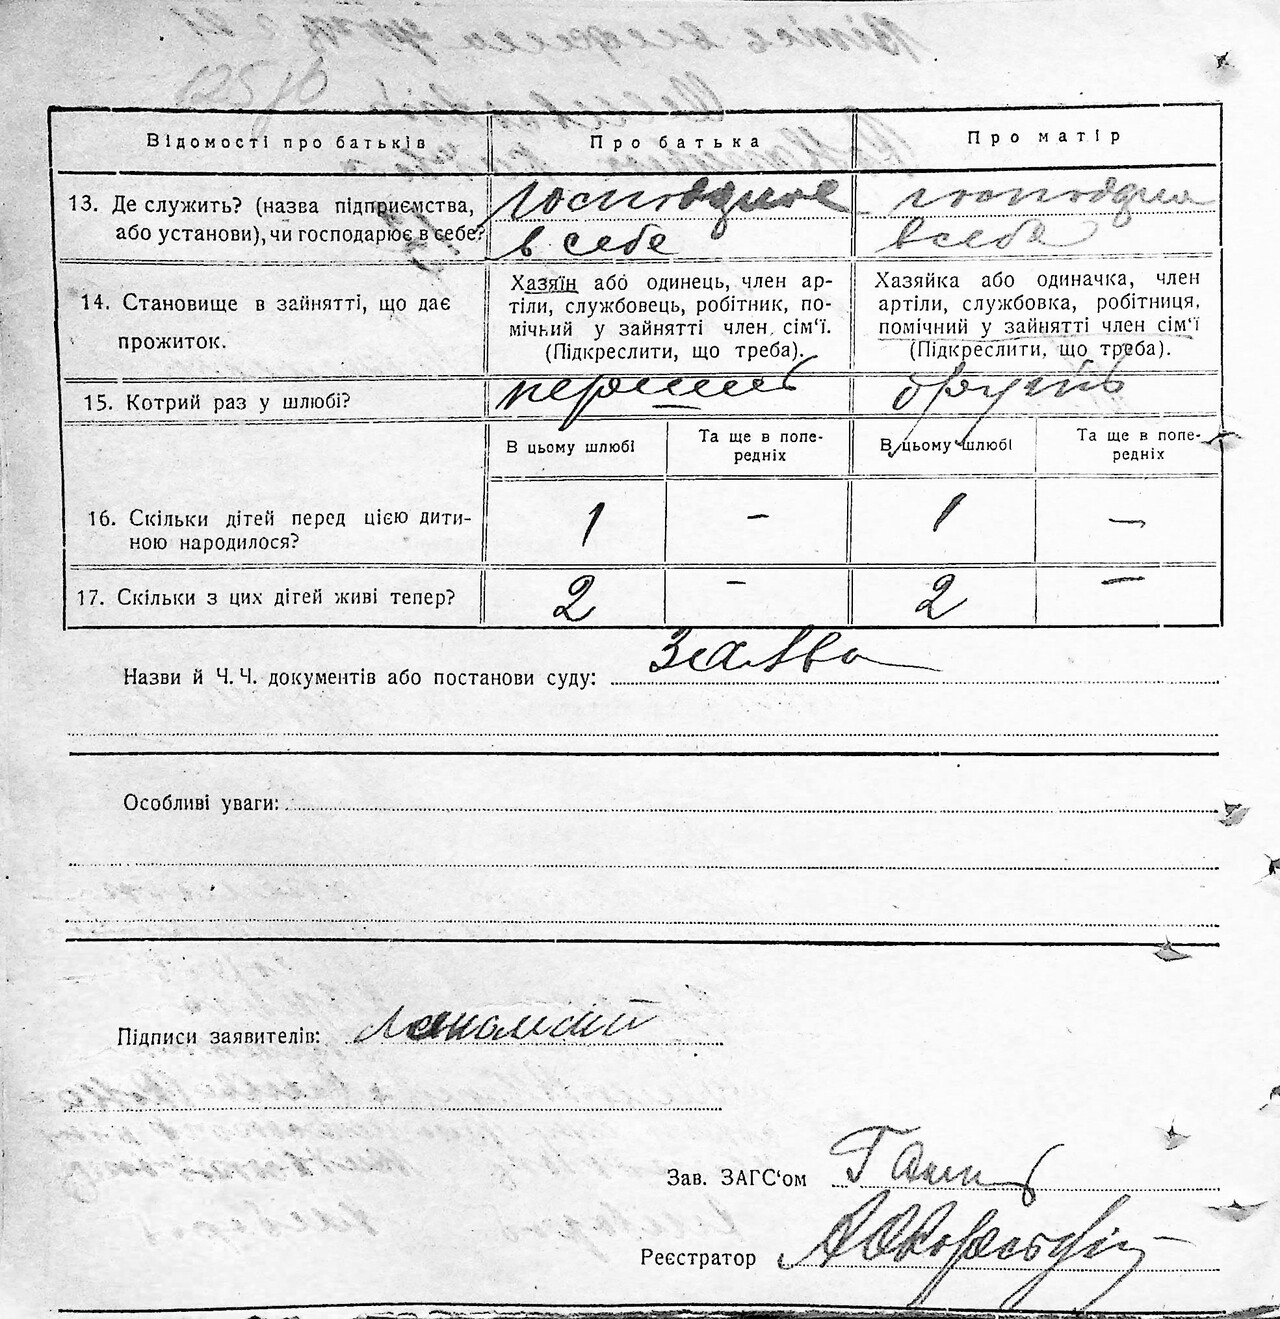 Відомості про батьків
Про батька
Про матір
13. Де служить? (назва підприємства,
або установи), чи господарює в себе?
в себе
в себе
14. Становище в зайнятті, що дає
прожиток.
Хазяїн або одинець, член ар-
тіли, службовець, робітник, по-
мічний у зайнятті член сім'ї.
(Підкреслити, що треба).
Хазяйка або одиначка, член
артіли, службовка, робітниця,
помічний у зайнятті член сім'ї
(Підкреслити, що треба).
15. Котрий раз у шлюбі?
В цьому шлюбі
Та ще в попе-
редніх
В цьому шлюбі
Та ще в попе-
редніх
16. Скільки дітей перед цією дити-
ною народилося?
1
–
1
–
17. Скільки з цих дітей живі тепер?
2
–
2
–
Назви й Ч. Ч. документів або постанови суду: Заява
Особливі уваги:
Підписи заявителів:
Зав. ЗАГС‘ом
Реєстратор